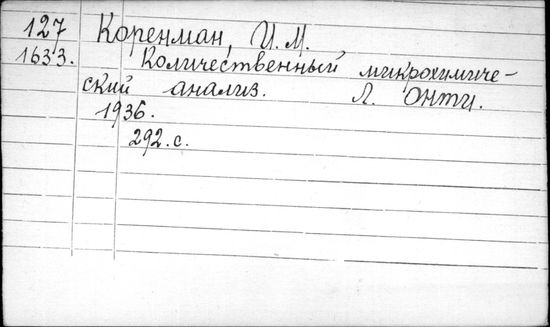 127 Коренман, И. М.
1633. Количественный микрохимиче-
ский анализ. Л. Онти.
1936.
292. с.